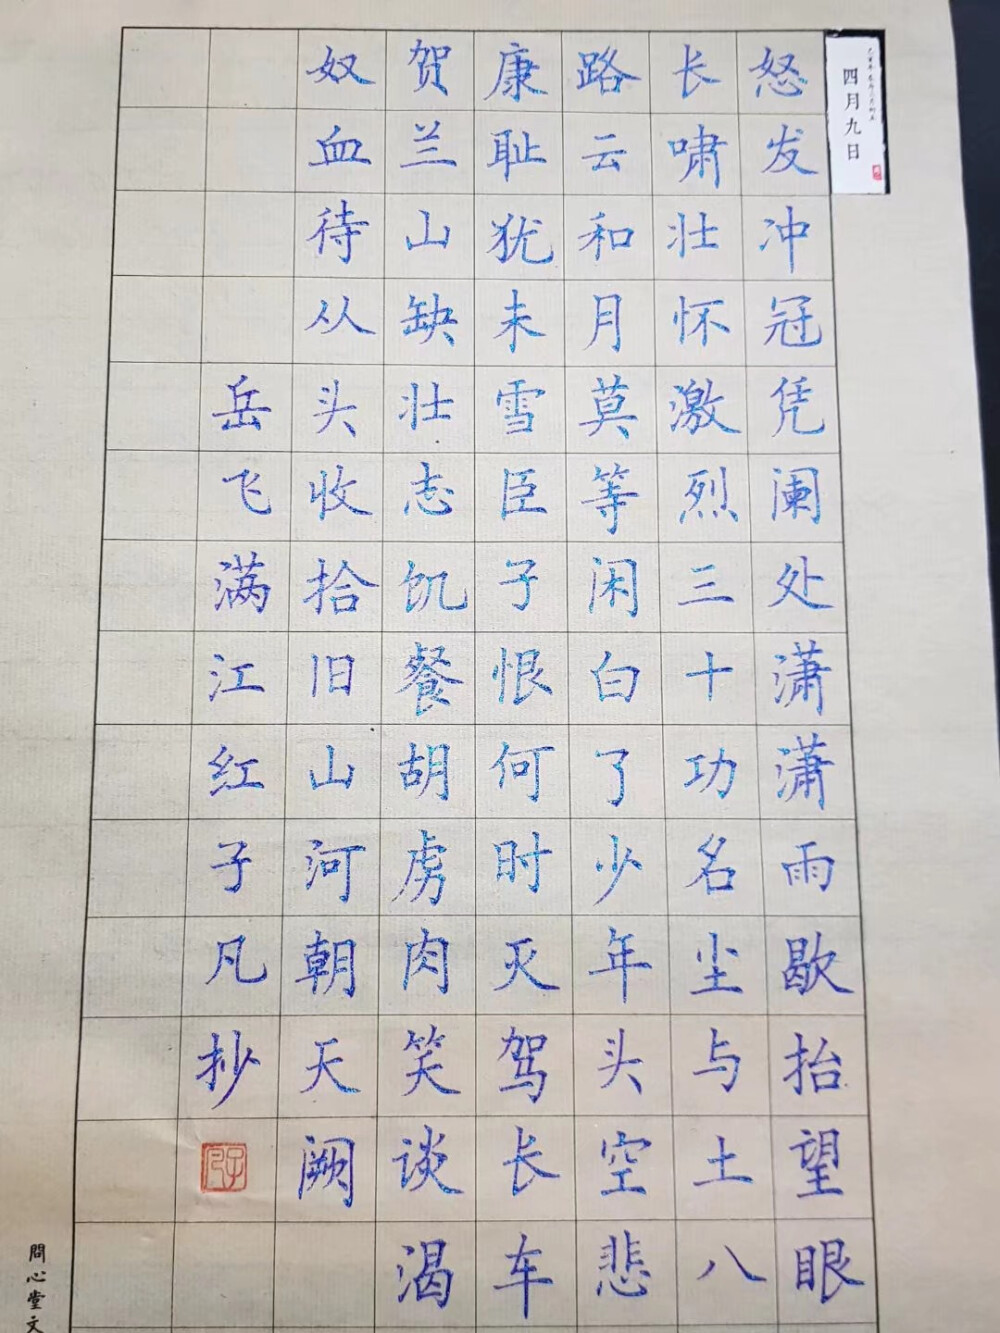 四月九日
怒发冲冠凭阑处潇潇雨歇抬望眼
长啸壮怀激烈三十功名尘与土八
路云和月莫等闲白了少年头空悲
康耻犹未雪臣子恨何时灭驾长车
贺兰山缺壮志饥餐胡虏肉笑谈渴
奴血待从头收拾旧山河朝天阙
岳飞满江红子凡抄
子凡
問心堂文